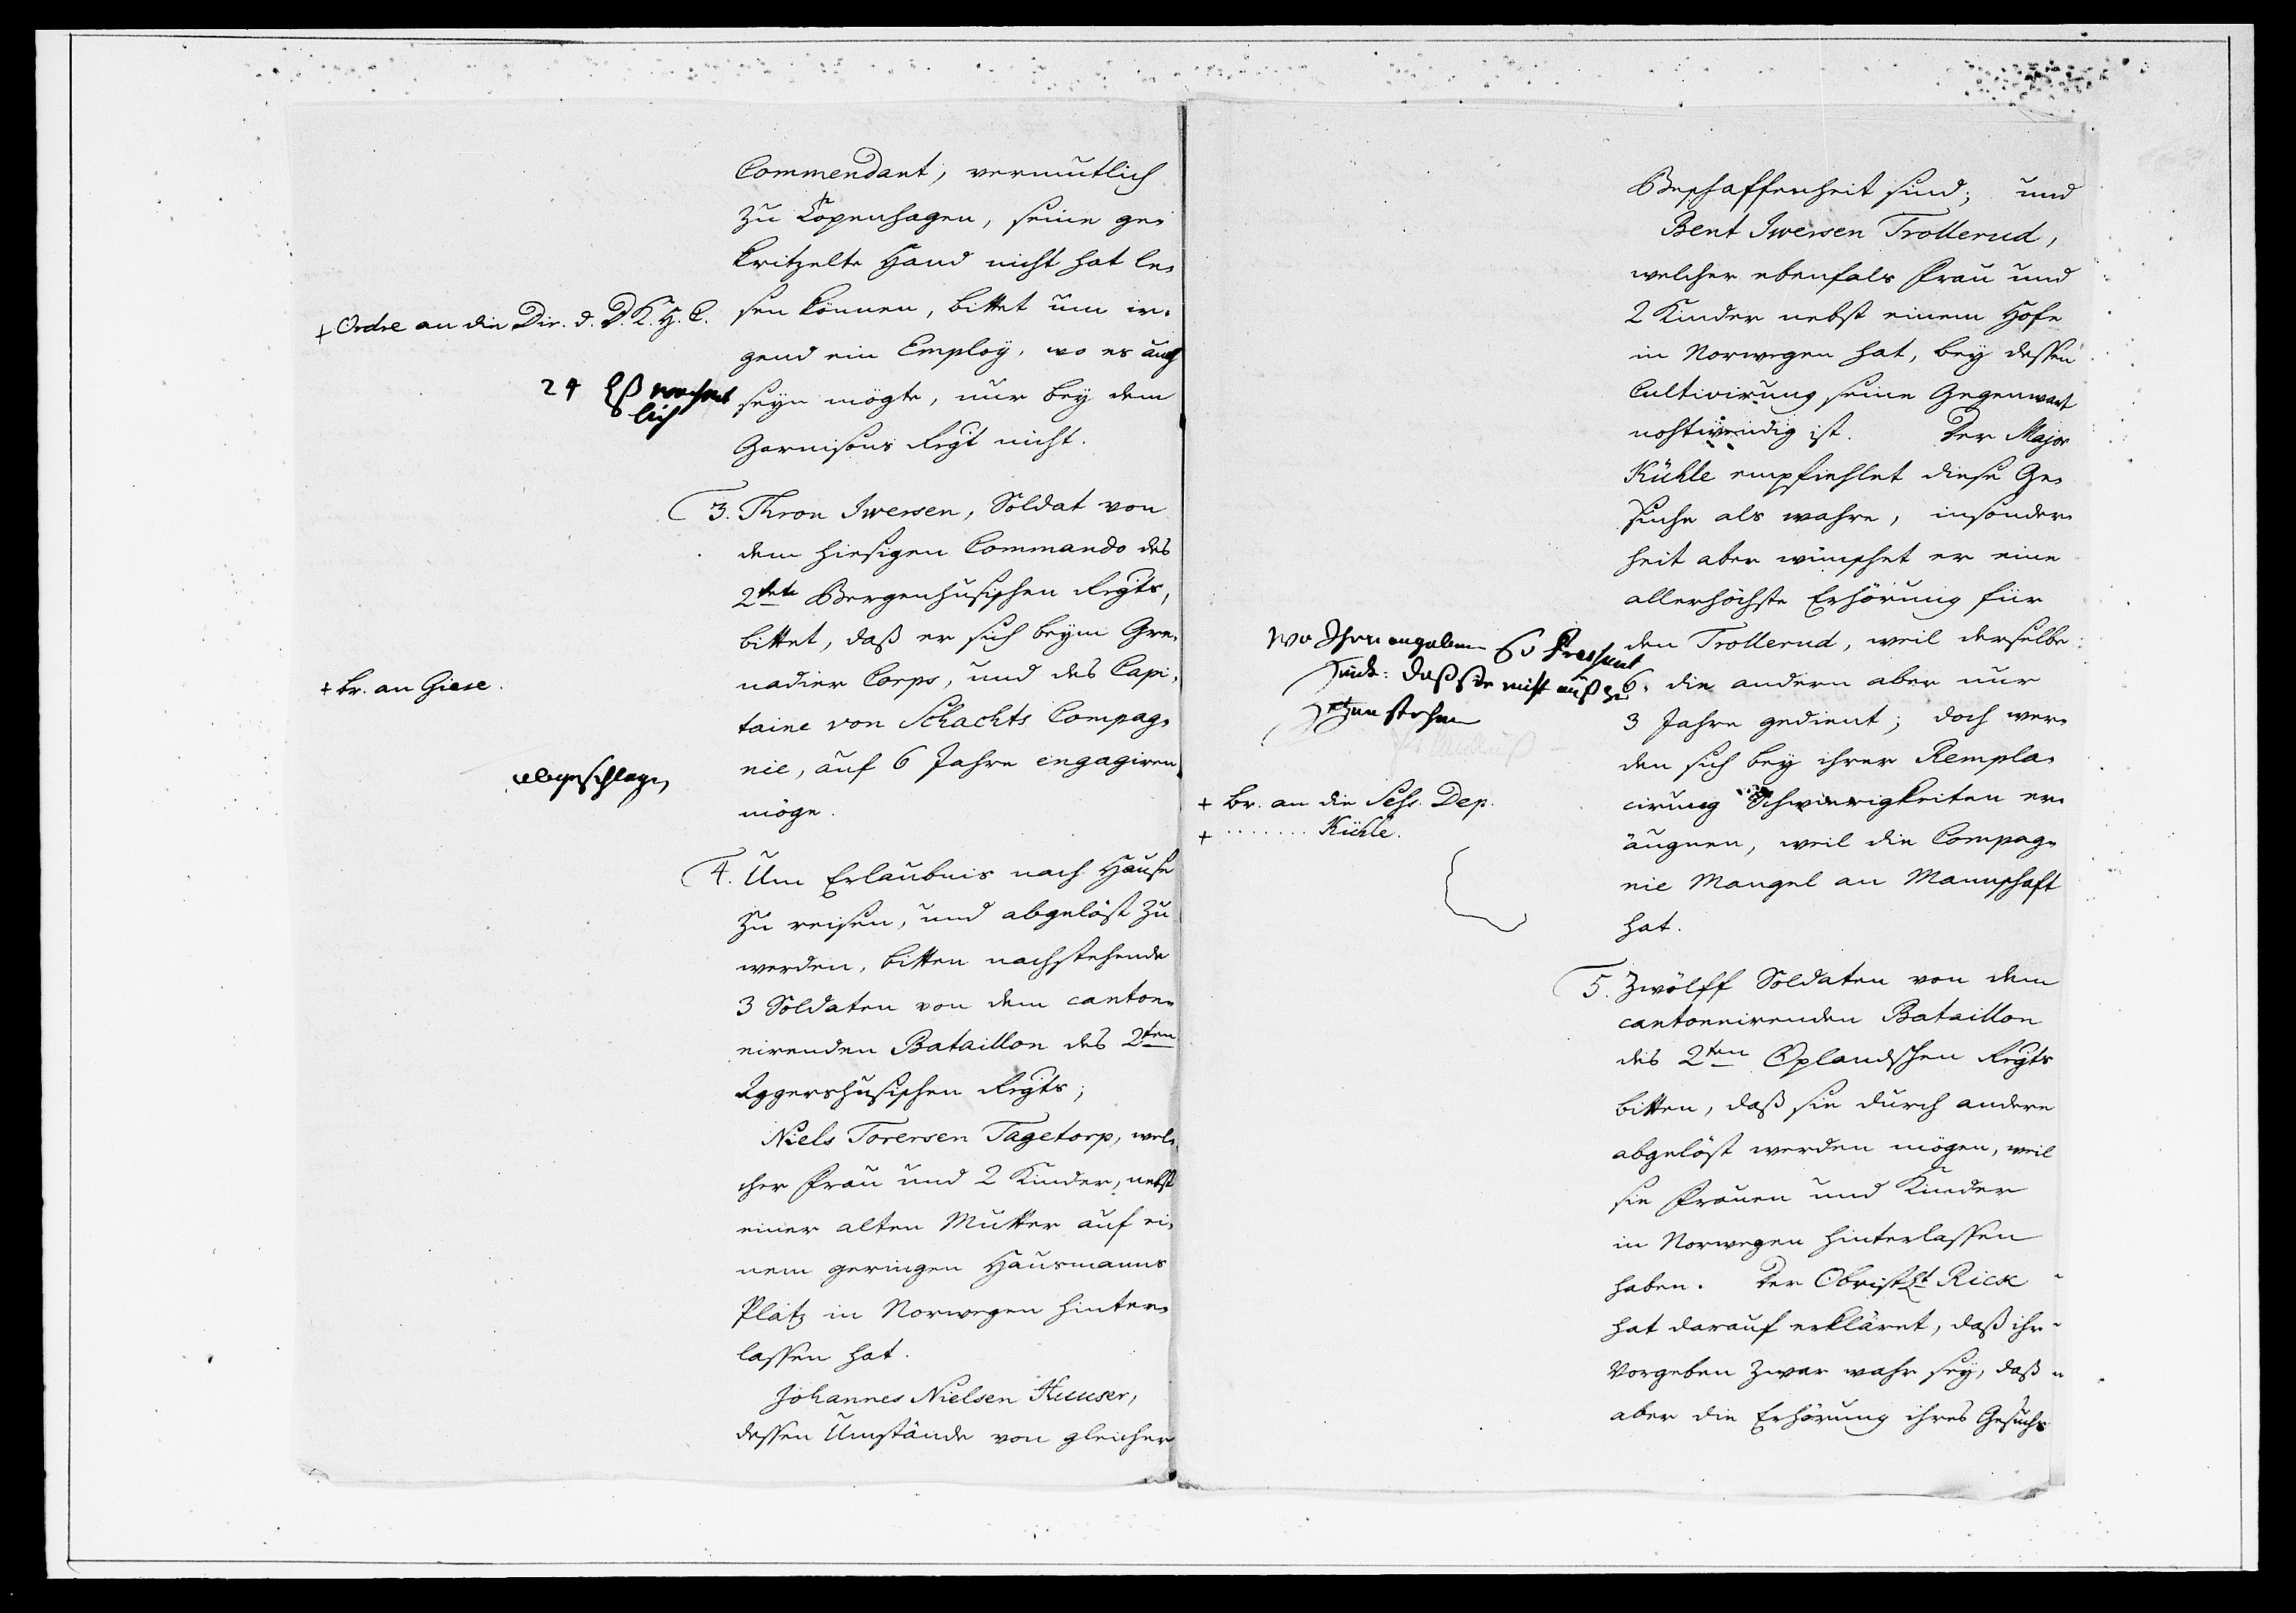 Commendant, vermutlich
zu Copenhagen, seine ge-
kritzelte Hand nicht hat le-
sen können, bittet um ir-
gend ein Employ, wo es auch
seyn mögte, nur bey dem
Garnisons Regt nicht.
+ Ordre an die Dir. d. D. K. H. C.
24
3. Thron Iwersen, Soldat von
dem hiesigen Commando des
2ten Bergenhusischen Regts,
bittet, daß er sich beym Gre-
nadier Corps, und des Capi-
taine von Schachts Compag-
nie, auf 6 Jahre engagiren
möge.
+ Br. an Giese.
abgeschlagen
4. Um Erlaubnis nach Hause
zu reisen, und abgelöst zu
werden, bitten nachstehende
3 Soldaten von dem canton-
nirenden Bataillon des 2ten
Aggershusischen Regts;
Niels Torersen Tagetorp, wel-
cher Frau und 2 Kinder, nebst
einer alten Mutter auf ei-
nem geringen Hausmanns
Platz in Norwegen hinter-
lassen hat.
Johannes Nielsen Huuser,
dessen Umstände von gleicher
Beschaffenheit sind; und
Bent Iwersen Trollerud,
welcher ebenfals Frau und
2 Kinder nebst einem Hofe
in Norwegen hat, bey dessen
Cultivirung seine Gegenwart
nohtwendig ist. Der Major
Kühle empfiehlet diese Ge-
suche als wahre, insonder-
heit aber wünschet er eine
allerhöchste Erhörung für
den Trollerud, weil derselbe
6, die andern aber nur
3 Jahre gedient; doch wer-
den sich bey ihrer Rempla-
cirung Schwierigkeiten er-
äugnen, weil die Compag-
nie Mangel an Mannschaft
hat.
wo Ihre angaben so
daß sie nicht
+ Br. an die Sehs. Dep.
+ ....... Kühle.
5. Zwölff Soldaten von dem
cantonnirenden Bataillon
des 2ten Oplandschen Regts
bitten, daß sie durch andere
abgelöst werden mögen, weil
sie Frauen und Kinder
in Norwegen hinterlassen
haben. Der ObristLt Rick
hat darauf erkläret, daß ihr
Vorgeben zwar wahr sey, daß
aber die Erhörung ihres Gesuchs